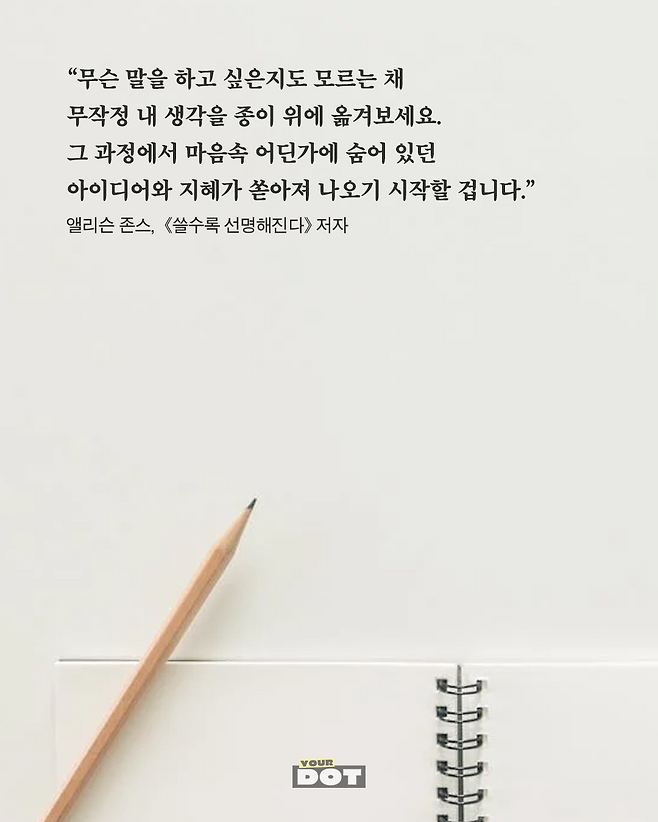 “무슨 말을 하고 싶은지도 모르는 채
무작정 내 생각을 종이 위에 옮겨보세요.
그 과정에서 마음속 어딘가에 숨어 있던
아이디어와 지혜가 쏟아져 나오기 시작할 겁니다.”
앨리슨 존스, 《쓸수록 선명해진다》 저자
YOUR
DOT